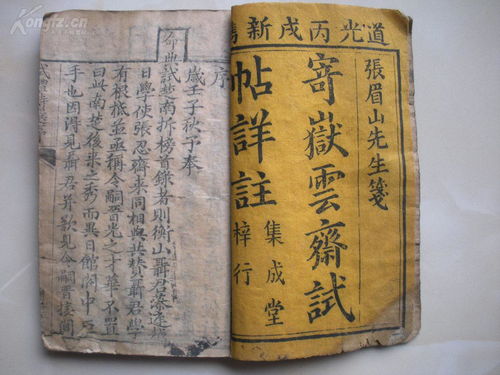 Kongfz.cn
道光丙戌新
張眉山先生箋
寄嶽雲齋試
帖詳註
集成堂
梓行
序
歲壬子秋予奉
命典試楚南拆榜首錄者則衡山聶君
日學使張忍齋來同相與共贊聶君學
有根柢並亟稱令嗣晋光之才華不置
曰此南楚後來之秀而異日館閣中巨
手也因得見聶君并歎見令嗣晋接間